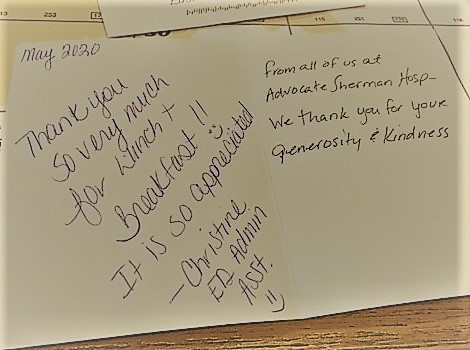 May 2020
Thank you
So very much
for Lunch +
Breakfast !!
It is so appreciated
- Christine
ED Admin
Asst.
From all of us at
Advocate Sherman Hosp-
We thank you for your
generosity & Kindness
13
253
115
251
116